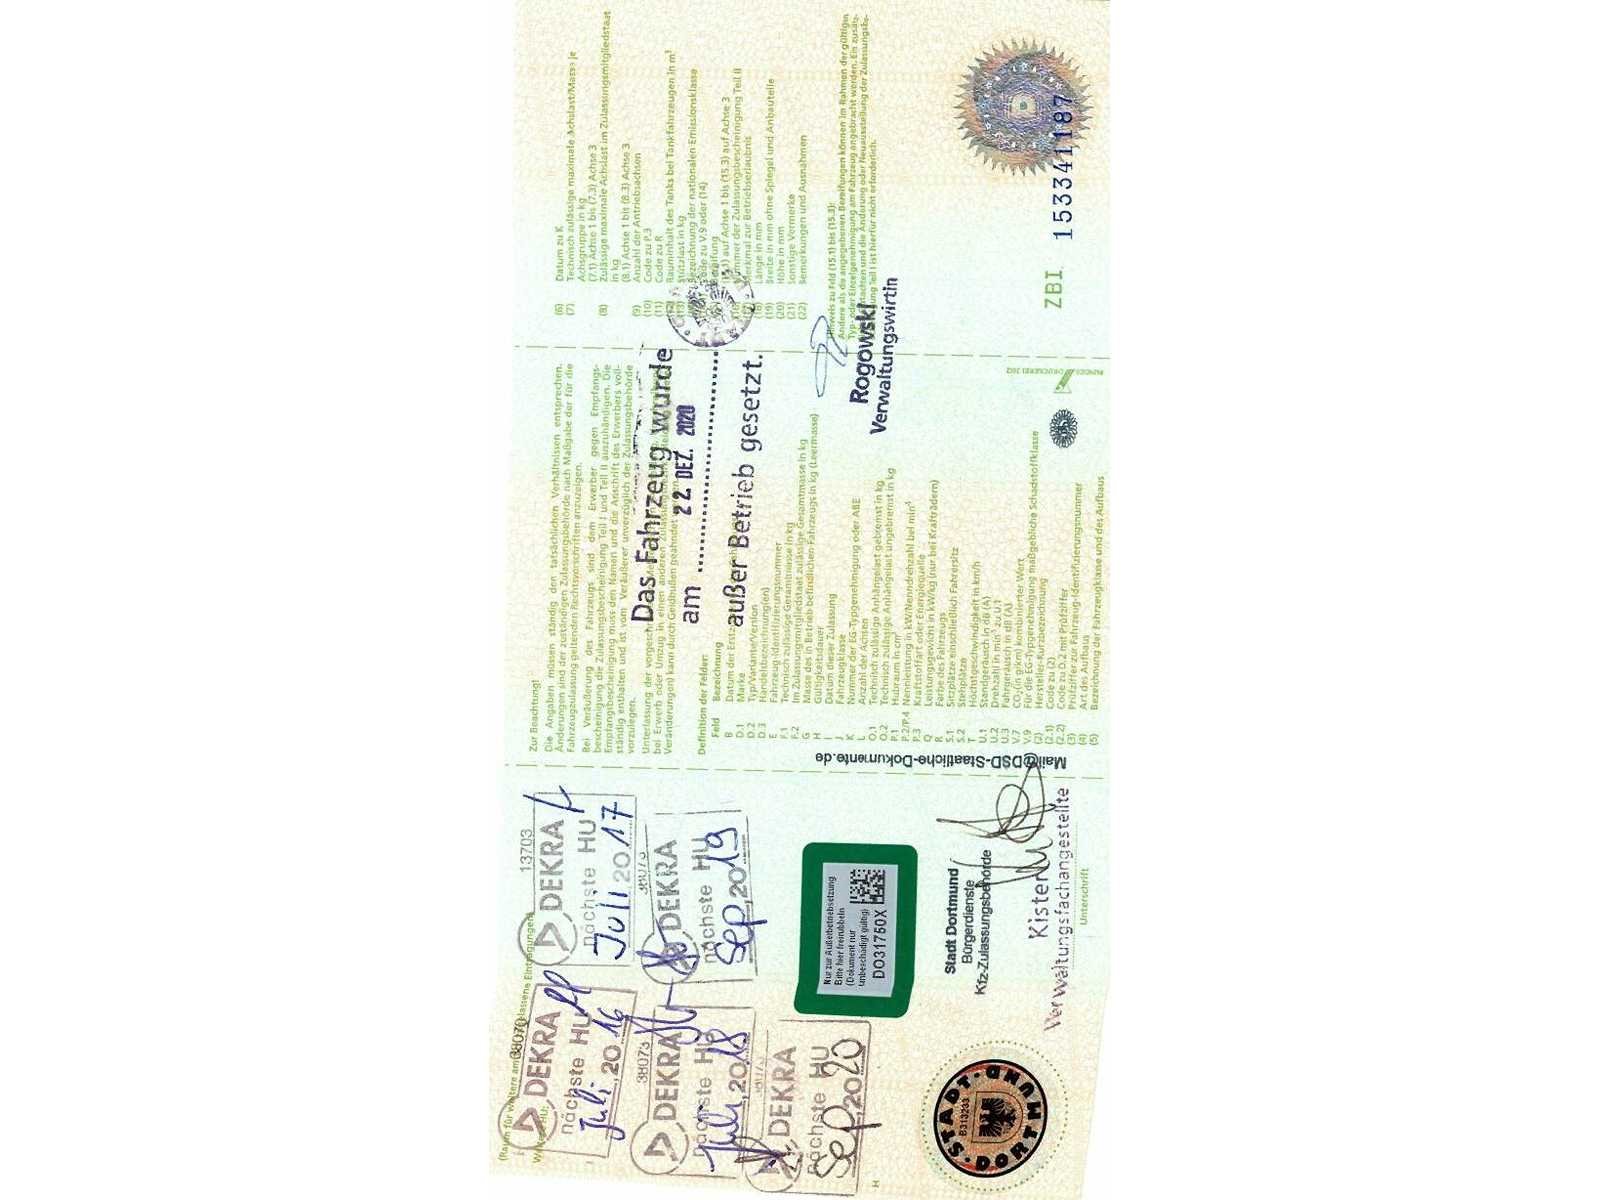 (6) Datum zu K
(7) Technisch zulässige maximale Achslast/Masse je
Achsgruppe in kg
(7.1) Achse 1 bis (7.3) Achse 3
(8) Zulässige maximale Achslast im Zulassungsmitgliedstaat
in kg
(8.1) Achse 1 bis (8.3) Achse 3
(9) Anzahl der Antriebsachsen
(10) Code zu P.3
(11) Code zu R
Rauminhalt des Tanks bei Tankfahrzeugen in m³
Stützlast in kg
Bezeichnung der nationalen Emissionsklasse
zu V.9 oder (14)
auf Achse 1 bis (15.3) auf Achse 3
der Zulassungsbescheinigung Teil II
Merkmal zur Betriebserlaubnis
(18) Länge in mm
(19) Breite in mm ohne Spiegel und Anbauteile
(20) Höhe in mm
(21) Sonstige Vermerke
(22) Bemerkungen und Ausnahmen
Hinweis zu Feld (15.1) bis (15.3):
Andere als die angegebenen Bereifungen können im Rahmen der gültigen
Typ- oder Einzelgenehmigung am Fahrzeug angebracht werden. Ein zusätz-
Gutachten und die Änderung oder Neuausstellung der Zulassungsbe-
Teil I ist hierfür nicht erforderlich.
Rogowski
Verwaltungswirtin
ZBI 153341187
Zur Beachtung!
Die Angaben müssen ständig den tatsächlichen Verhältnissen entsprechen.
Änderungen sind der zuständigen Zulassungsbehörde nach Maßgabe der für die
Fahrzeugzulassung geltenden Rechtsvorschriften anzuzeigen.
Bei Veräußerung des Fahrzeugs sind dem Erwerber gegen Empfangs-
bescheinigung die Zulassungsbescheinigung Teil I und Teil II auszuhändigen. Die
Empfangsbescheinigung muss den Namen und die Anschrift des Erwerbers voll-
ständig enthalten und ist vom Veräußerer unverzüglich der Zulassungsbehörde
vorzulegen.
Unterlassung der vorgeschr
bei Erwerb oder Umzug in einen anderen
Veränderungen) kann durch Geldbußen geahndet
Das Fahrzeug wurde
am 22. DEZ. 2020
außer Betrieb gesetzt.
Definition der Felder:
Feld Bezeichnung
B Datum der Erst
D.1 Marke
D.2 Typ/Variante/Version
D.3 Handelsbezeichnung(en)
E Fahrzeug-Identifizierungsnummer
F.1 Technisch zulässige Gesamtmasse in kg
F.2 Im Zulassungsmitgliedstaat zulässige Gesamtmasse in kg
G Masse des in Betrieb befindlichen Fahrzeugs in kg (Leermasse)
H Gültigkeitsdauer
I Datum dieser Zulassung
J Fahrzeugklasse
K Nummer der EG-Typgenehmigung oder ABE
L Anzahl der Achsen
O.1 Technisch zulässige Anhängelast gebremst in kg
O.2 Technisch zulässige Anhängelast ungebremst in kg
P.1 Hubraum in cm³
P.2/P.4 Nennleistung in kW/Nenndrehzahl bei min⁻¹
P.3 Kraftstoffart oder Energiequelle
Q Leistungsgewicht in kW/kg (nur bei Krafträdern)
R Farbe des Fahrzeugs
S.1 Sitzplätze einschließlich Fahrersitz
S.2 Stehplätze
T Höchstgeschwindigkeit in km/h
U.1 Standgeräusch in dB (A)
U.2 Drehzahl in min⁻¹ zu U.1
U.3 Fahrgeräusch in dB (A)
V.7 CO₂ (in g/km) kombinierter Wert
V.9 Für die EG-Typgenehmigung maßgebliche Schadstoffklasse
(2) Hersteller-Kurzbezeichnung
(2.1) Code zu (2)
(2.2) Code zu D.2 mit Prüfziffer
(3) Prüfziffer zur Fahrzeug-Identifizierungsnummer
(4) Art des Aufbaus
(5) Bezeichnung der Fahrzeugklasse und des Aufbaus
Mail@DSD-Staatliche-Dokumente.de
13703
DEKRA
nächste HU
Juli 2017
38070
DEKRA
nächste HU
Juli 2016
38073
DEKRA
nächste HU
Sep 2019
38073
DEKRA
nächste HU
Juli 2018
DEKRA
nächste HU
Sep 2020
Nur zur Außerbetriebsetzung
Bitte hier freirubbeln
(Dokument nur
unbeschädigt gültig)
DO31750X
Stadt Dortmund
Bürgerdienste
Kfz-Zulassungsbehörde
Kisten
Verwaltungsfachangestellte
Unterschrift
STADT DORTMUND
B313233
H